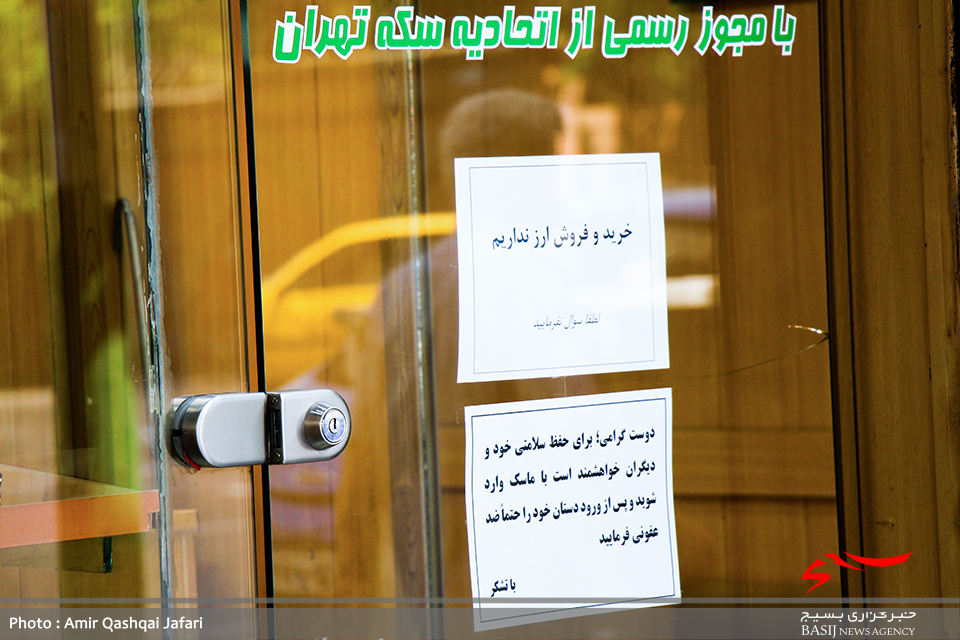 با مجوز رسمی از اتحادیه سکه تهران
خرید و فروش ارز نداریم
لطفا سوال نفرمایید
دوست گرامی؛ برای حفظ سلامتی خود و
دیگران خواهشمند است با ماسک وارد
شوید و پس از ورود دستان خود را حتماً ضد
عفونی فرمایید
با تشکر
بسیج
خبرگزاری بسیج
BASIJ NEWS AGENCY
Photo : Amir Qashqai Jafari